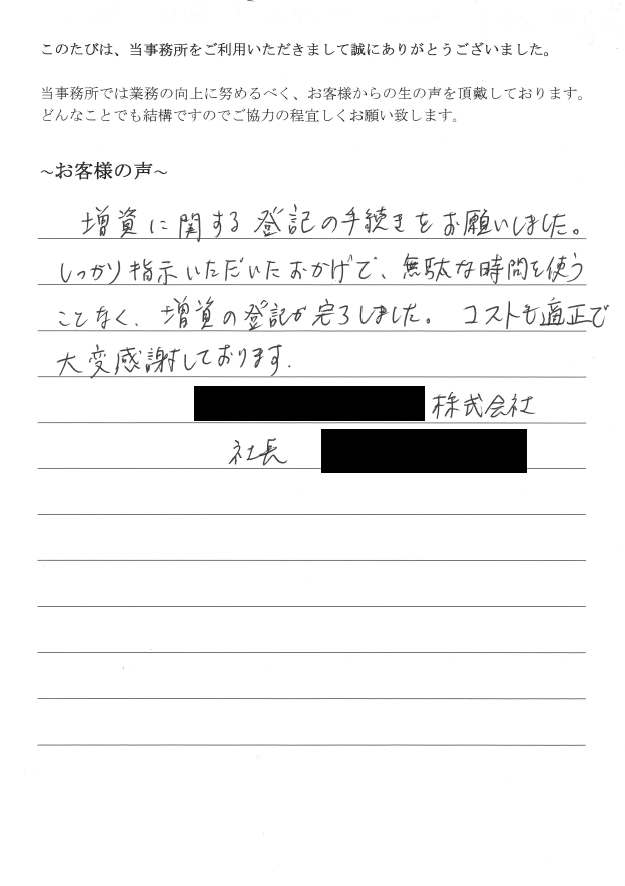 このたびは、当事務所をご利用いただきまして誠にありがとうございました。
当事務所では業務の向上に努めるべく、お客様からの生の声を頂戴しております。
どんなことでも結構ですのでご協力の程宜しくお願い致します。
~お客様の声~
増資に関する登記の手続きをお願いしました。
しっかり指示いただいたおかげで、無駄な時間を使う
ことなく、増資の登記が完了しました。コストも適正で
大変感謝しております.
株式会社
社長